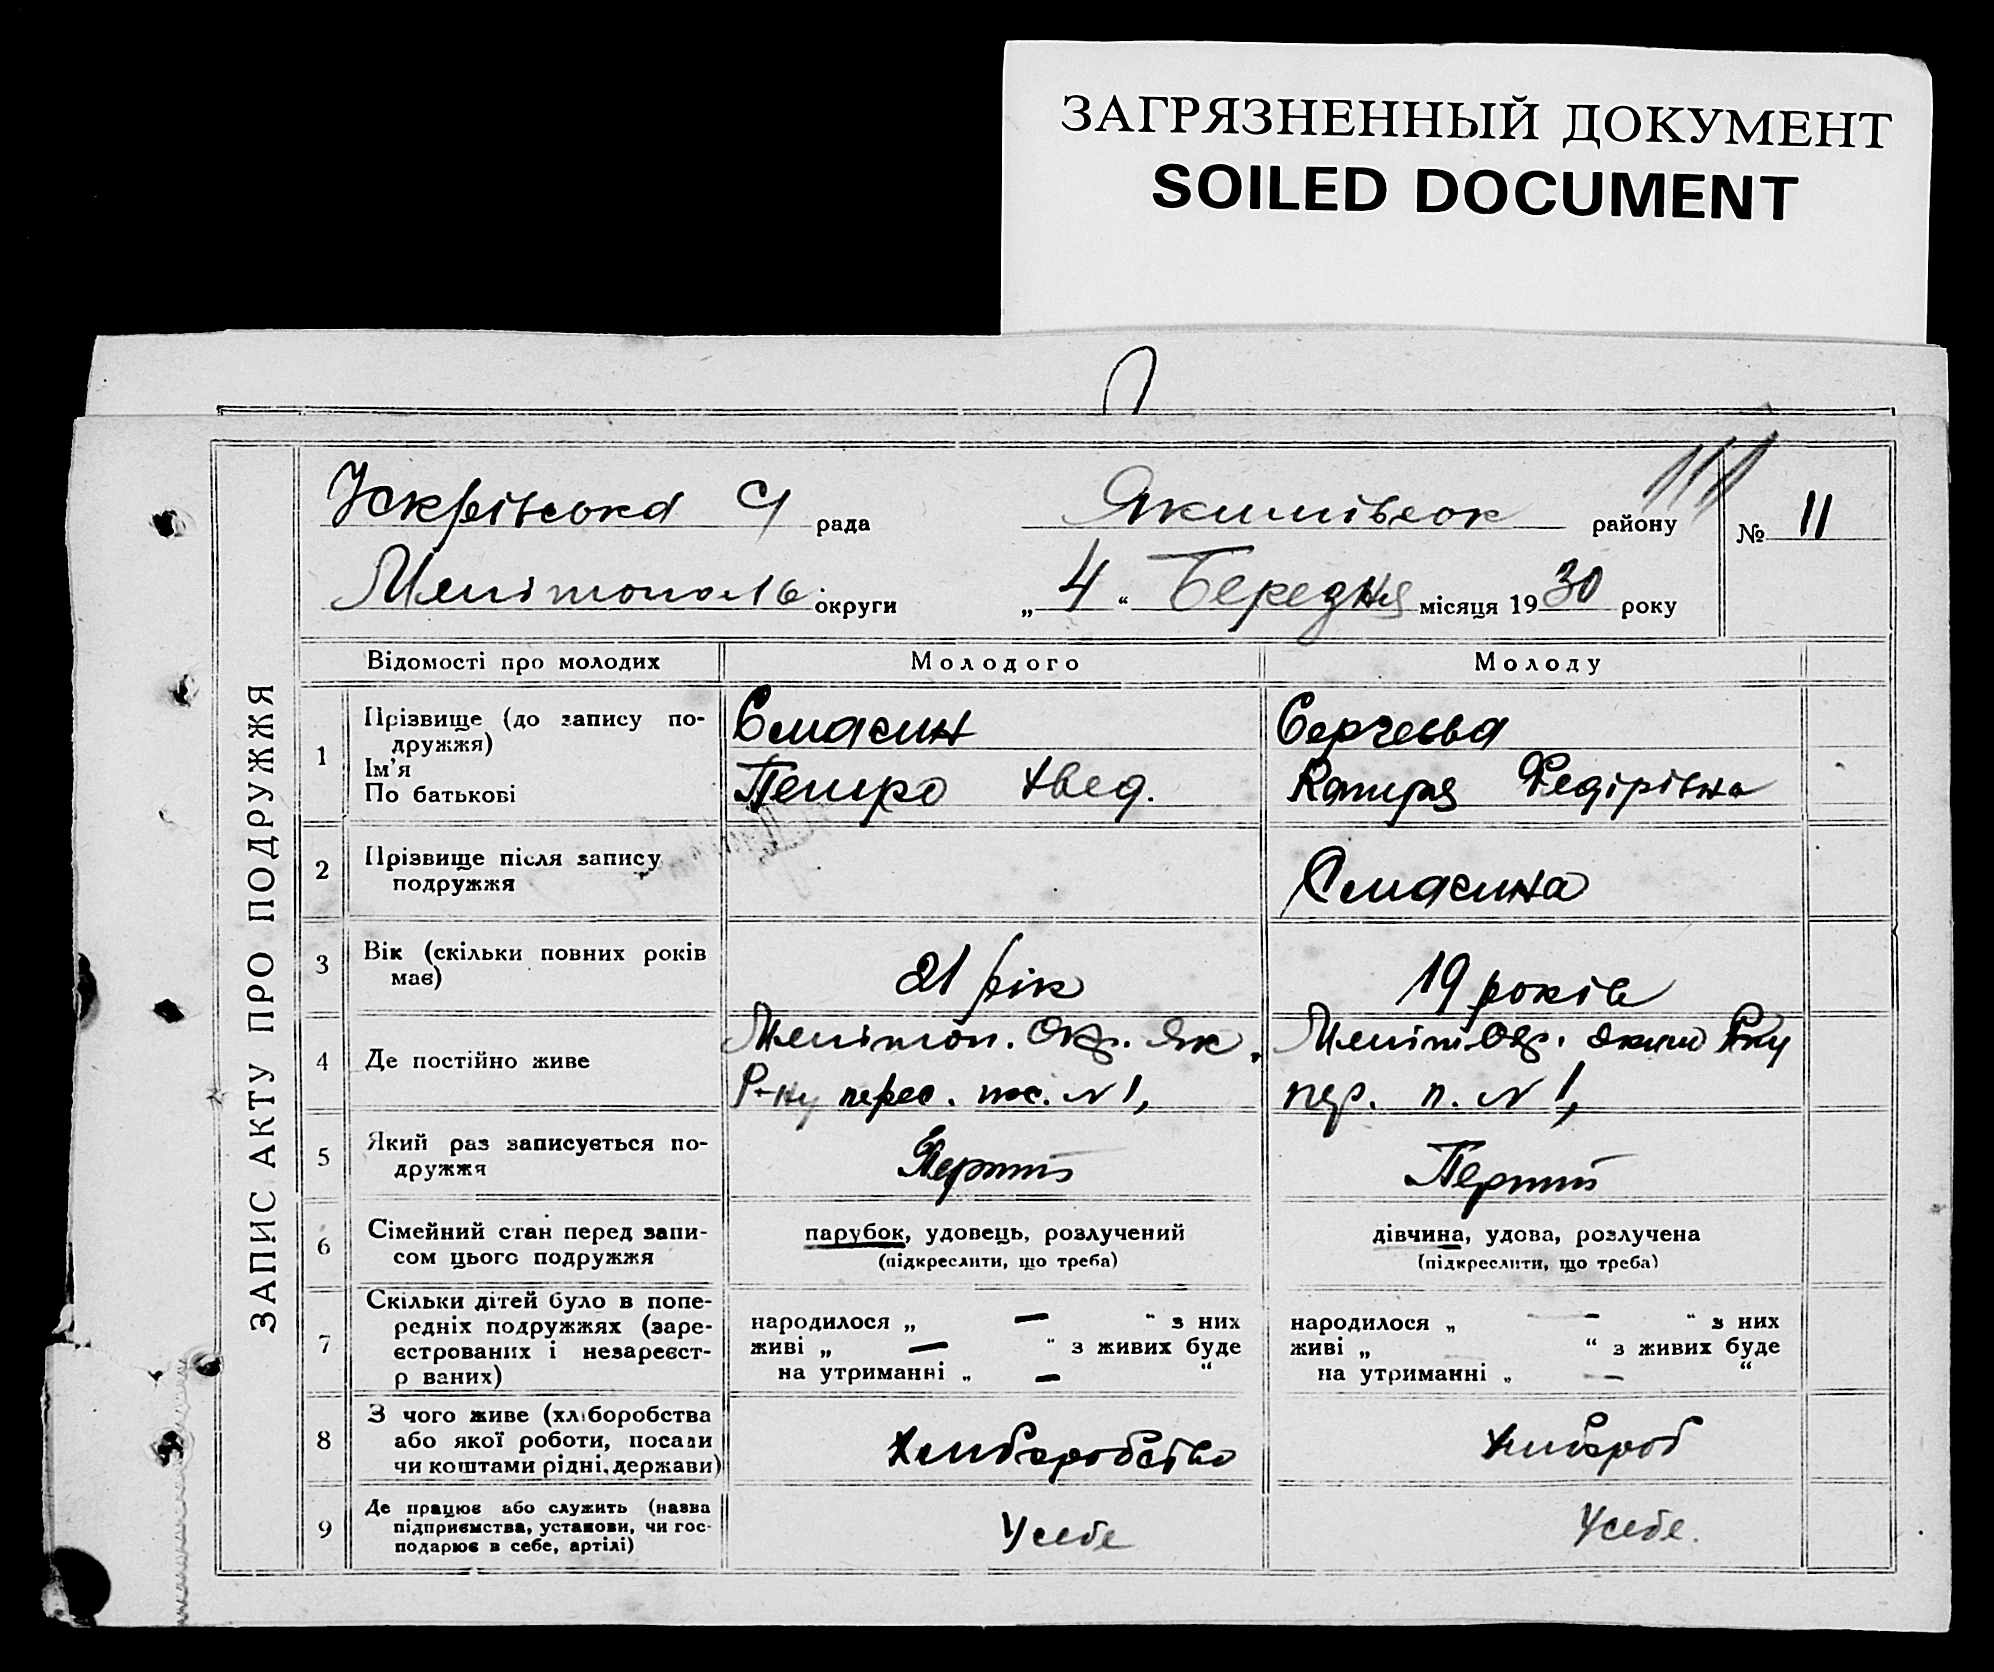 ЗАГРЯЗНЕННЫЙ ДОКУМЕНТ
SOILED DOCUMENT
ЗАПИС АКТУ ПРО ПОДРУЖЖЯ
Іскрівська С рада Якимівськ району № 11
Мелітополь округи „ 4 “ Березня місяця 19 30 року
Відомості про молодих Молодого Молоду
1 Прізвище (до запису по-
дружжя)
Ім'я
По батькові
Смасин
Петро
Сергеєва
Катря Федірівна
2 Прізвище після запису
подружжя
Смасина
3 Вік (скільки повних років
має)
21 рік
19 років
4 Де постійно живе
Мелітоп. Окр. Як.
Р-ну перес. пос. № 1,
Меліт. Окр. Яким Р-ну
пер. п. № 1,
5 Який раз записується по-
дружжя
Перший
Перший
6 Сімейний стан перед запи-
сом цього подружжя
парубок, удовець, розлучений
(підкреслити, що треба)
дівчина, удова, розлучена
(підкреслити, що треба)
7 Скільки дітей було в попе-
редніх подружжях (заре-
єстрованих і незареєст-
р ваних)
народилося „ — “ з них
живі „ — “ з живих буде
на утриманні „ — “
народилося „ — “ з них
живі „ “ з живих буде
на утриманні „ — “
8 З чого живе (хліборобства
або якої роботи, посади
чи коштами рідні, держави)
Хлиборобство
Хлибороб
9 Де працює або служить (назва
підприємства, установи, чи гос-
подарює в себе, артілі)
У себе
У себе.